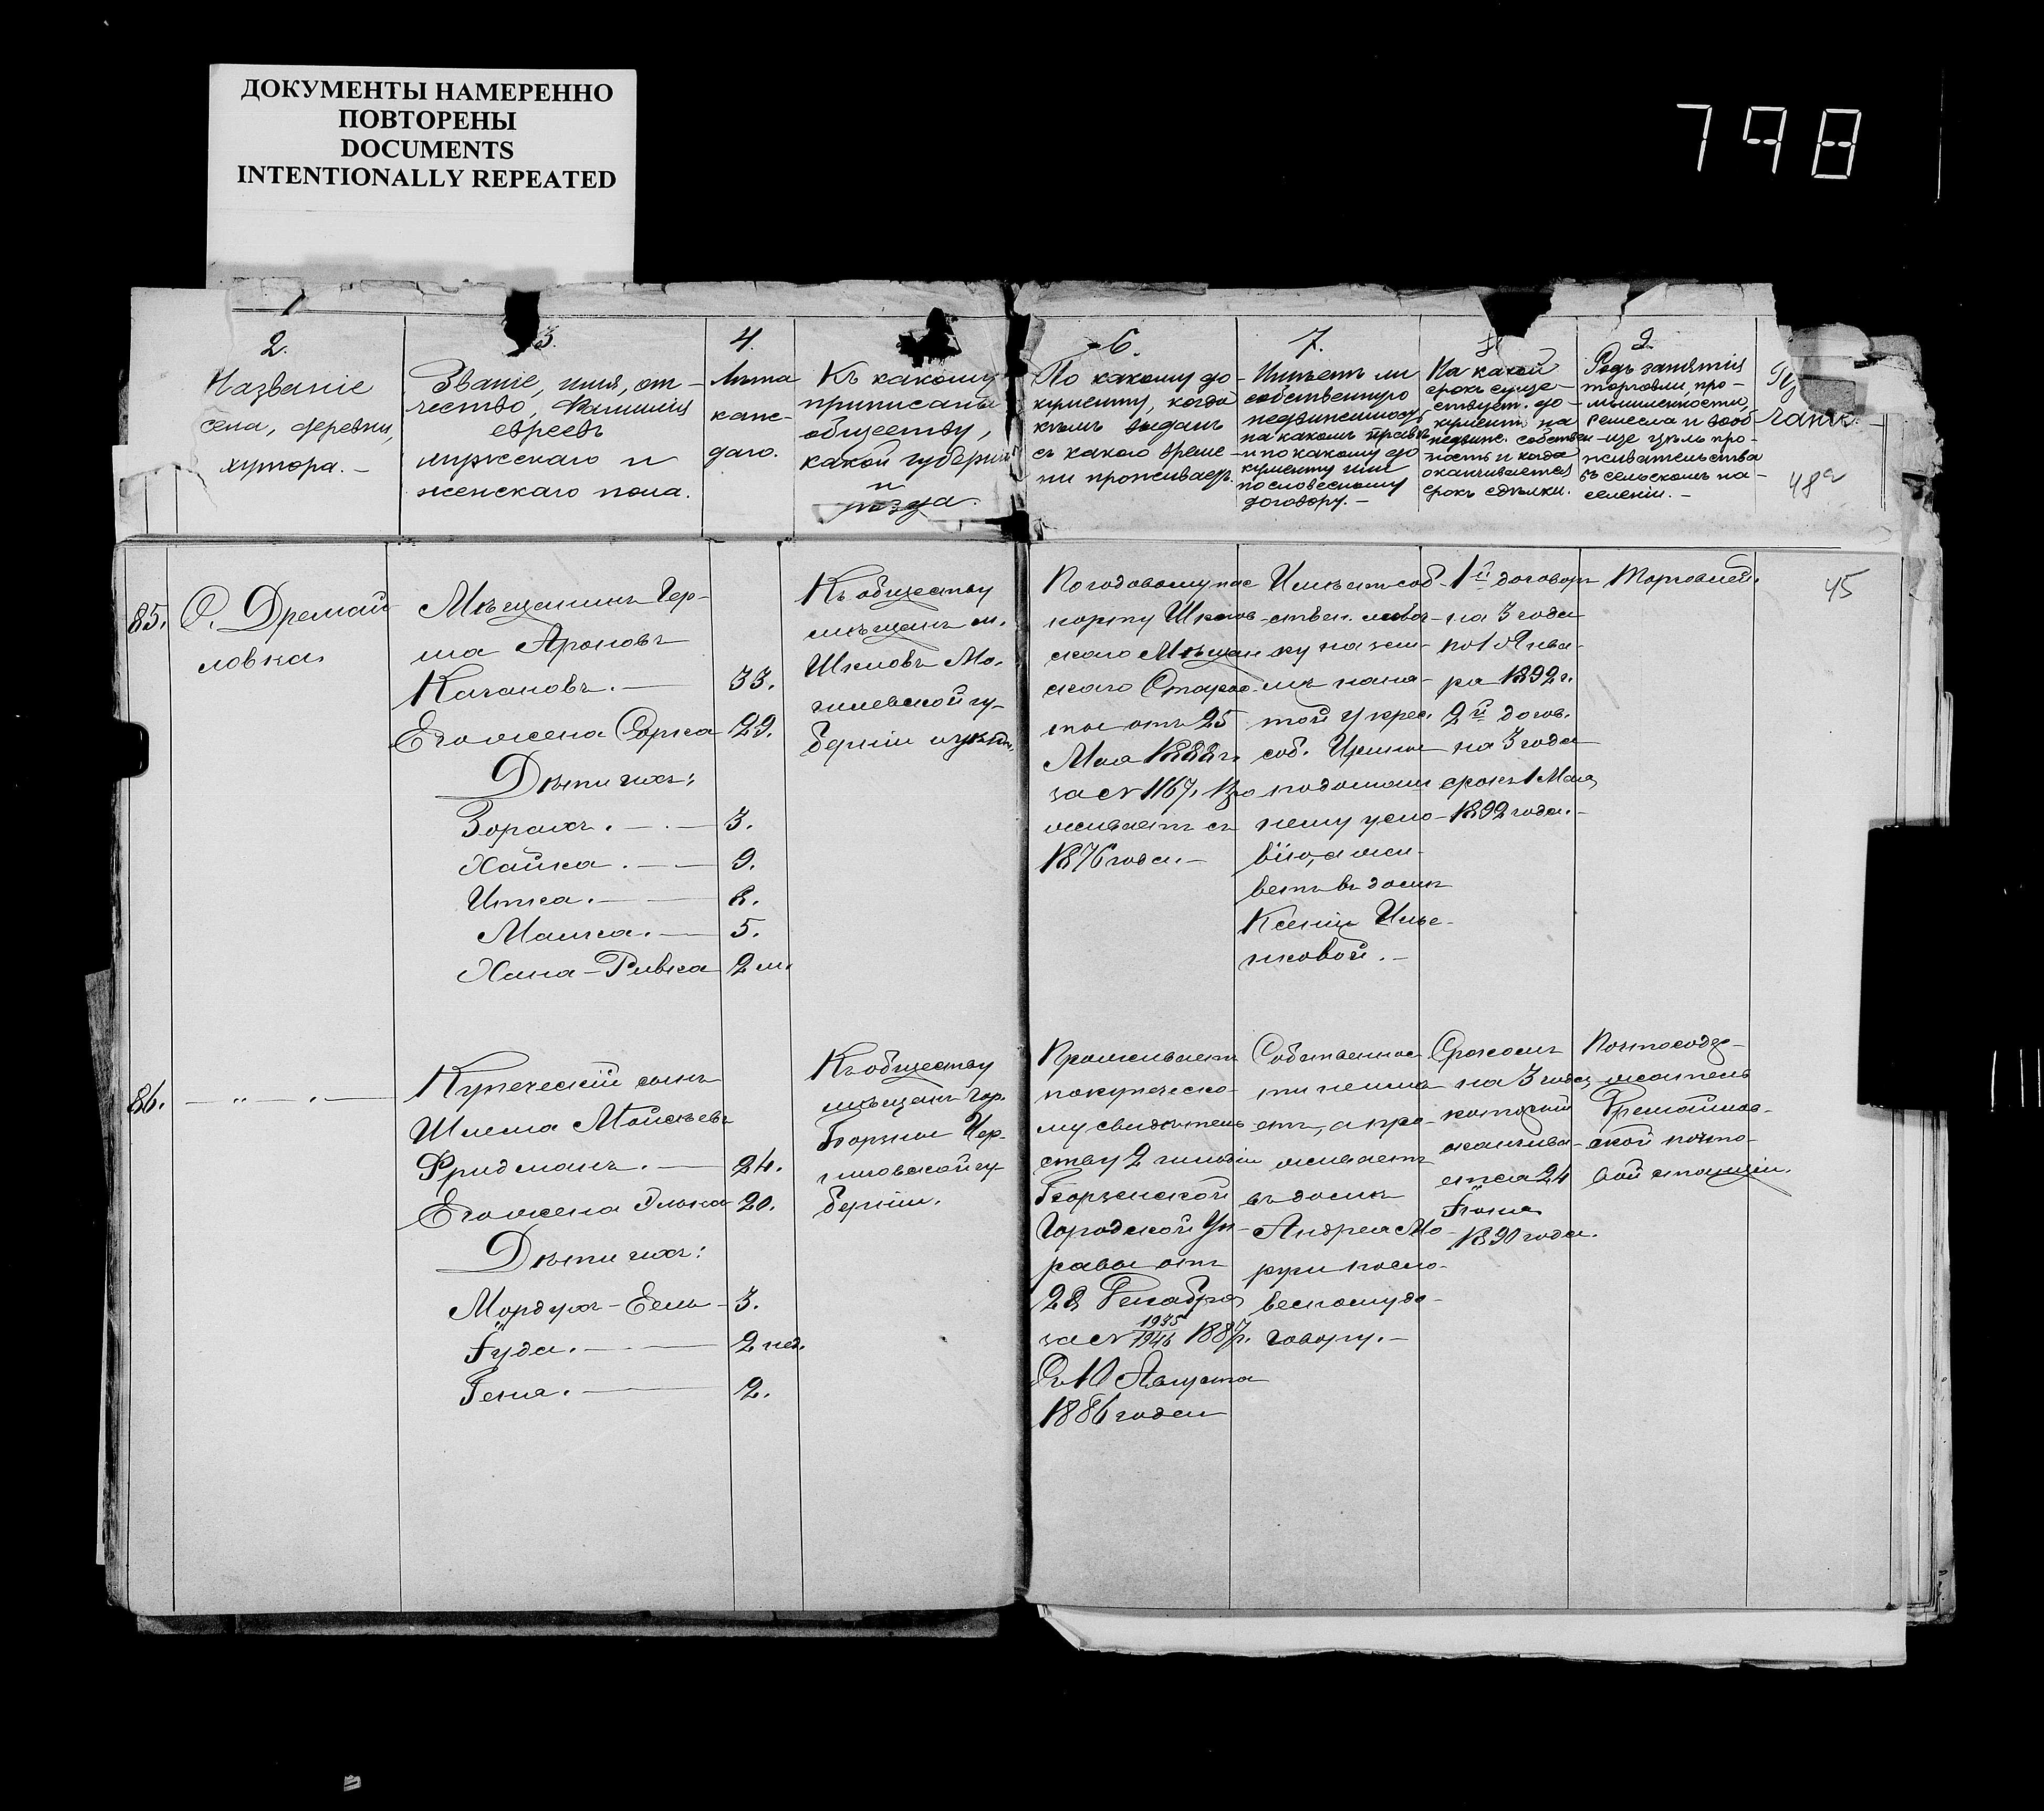 ДОКУМЕНТЫ НАМЕРЕННО
ПОВТОРЕНЫ
DOCUMENTS
INTENTIONALLY REPEATED
798
1
2.
Названіе
села, деревни,
хутора. –
3.
Званіе, имя, от-
чество, Фамилія
евреевъ
мужскаго и
женскаго пола.
4.
Лѣта
каж-
даго.
Къ какому
приписаны
обществу,
какой губерніи
и
уѣзда.
6.
По какому до-
кументу, когда
кѣмъ выданъ
съ какого време-
ни проживаетъ.
7.
Имѣетъ ли
собственную
недвижимость
на какомъ правѣ
и по какому до-
кументу или
по словесному
договору. –
На какой
срокъ суще-
ствует. до-
кументъ на
недвиж. собствен-
ность и когда
оканчивается
срокъ сдѣлки.
9.
Родъ занятія
торговли, про-
мышленности,
ремесла и вооб-
ще цѣль про-
живательства
въ сельскомъ на-
селеніи. –
48а
45
85.
С. Дремай
ловка.
Мѣщанинъ Гер-
ша Ароновъ
Кагановъ. — 33.
Его жена Сорка 29.
Дѣти ихъ:
Зорахъ. — 3.
Хайка. — 9.
Итка. — 8.
Машка. — 5.
Хана-Ривка 2 м.
Къ обществу
мѣщанъ м.
Шкловъ Мо-
гилевской гу-
берніи и уѣзда.
По годовому пас
порту Шклов-
скаго Мѣщан
скаго Старос
ты отъ 25
Мая 1888 г.
за № 1167. Про
живаетъ съ
1876 года. –
Имѣетъ соб-
ствен. лавоч-
ку на зем-
лѣ наня-
той у крес.
соб.
по домаш
нему усло-
вію, а жи-
ветъ въ домѣ
Ксеніи Илье-
нковой. –
1й договоръ
на 3 года
по 1 Янва-
ря 1892 г.
2й догов.
на 3 года
срокъ 1 Мая
1892 года. –
Торговлей.
86.
— „ — „ —
Купеческій сынъ
Шлема Мойсѣевъ
Фридманъ. — 24.
Его жена Элька 20.
Дѣти ихъ:
Мордухъ-Бель — 3.
Іуда. — 2 нед.
Геня. — 2.
Къ обществу
мѣщанъ гор.
Борзны Чер-
ниговской гу-
берніи.
Проживаетъ
по купеческо-
му свидѣтель-
ству 2 гильдіи
Борзенской
Городской Уп-
равы отъ
28 Декабря
за № 1935/1946 1887 г.
Съ 10 Августа
1886 года
Собственнос
ти неимѣ-
етъ, а про-
живаетъ
въ домѣ
Андрея Мо-
руги посло-
весному до-
говору. –
Срокомъ
на 3 года,
который
оканчива-
ется 24
Іюня
1890 года.
Почтосодер-
жатель
Дремайлов-
ской почто-
вой станціи.